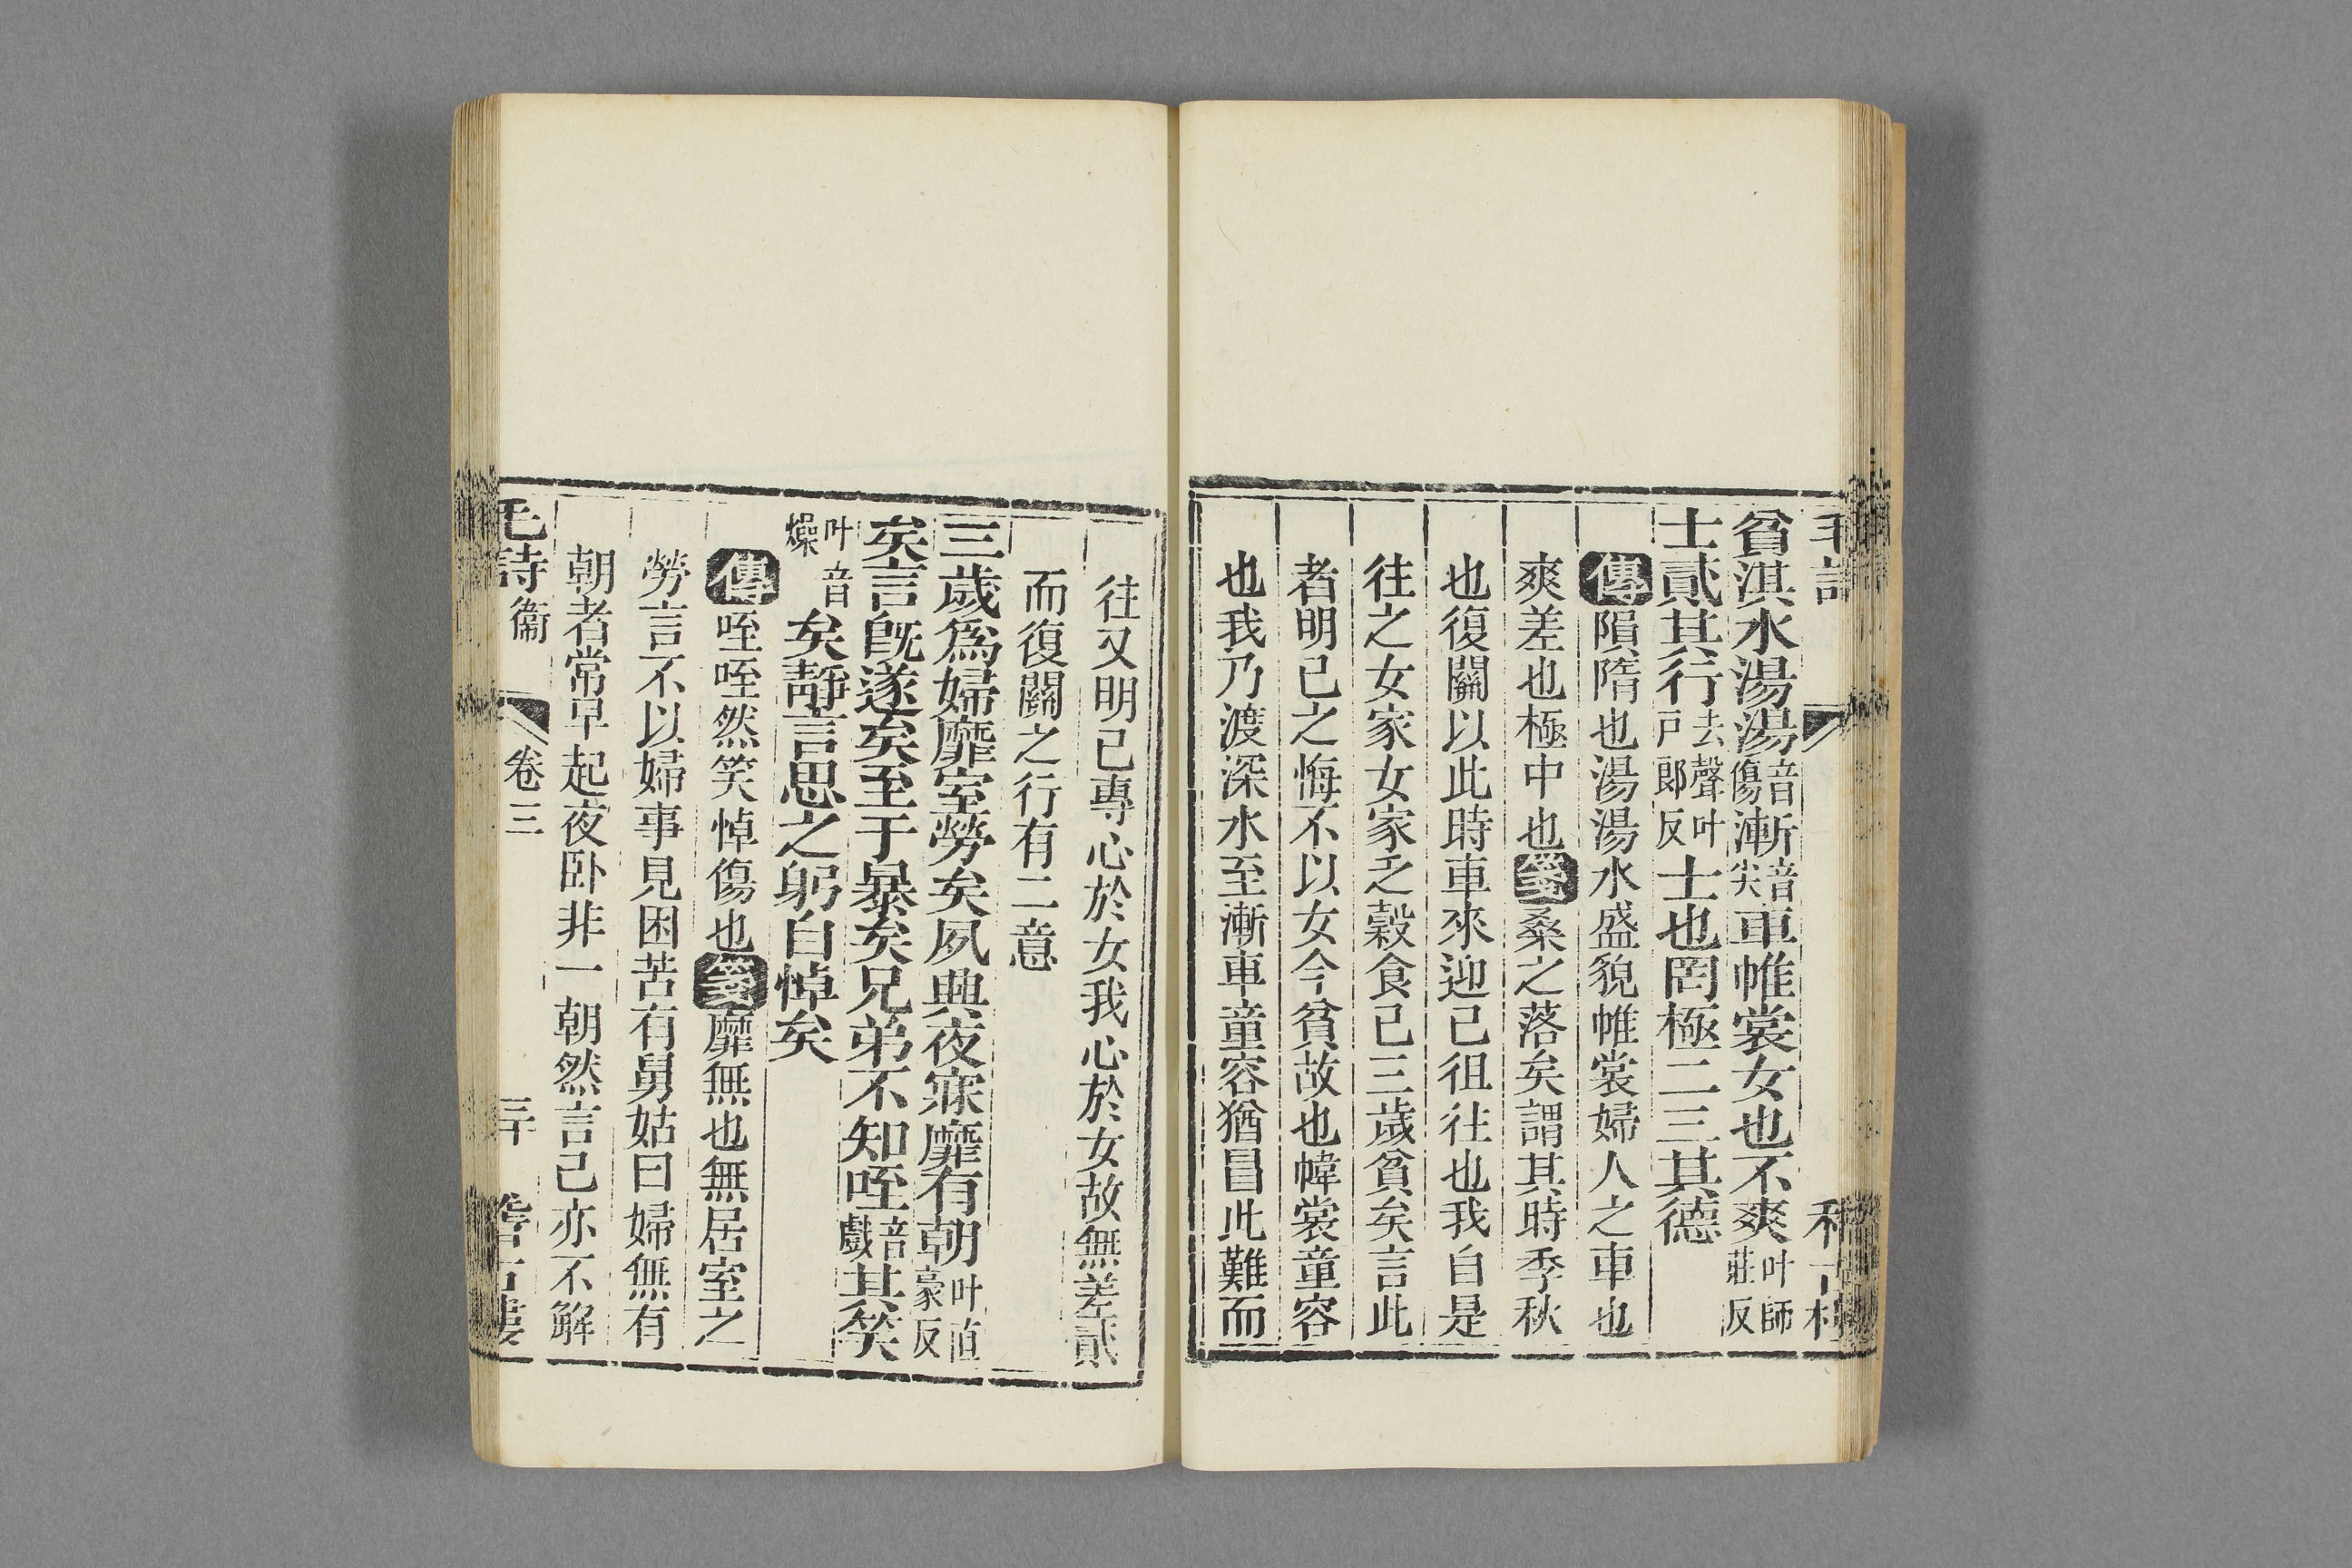 貧淇水湯湯音傷漸音尖車帷裳女也不爽叶師莊反
士貳其行去聲叶戸郎反士也罔極二三其德
傳隕隋也湯湯水盛貌帷裳婦人之車也
爽差也極中也箋桑之落矣謂其時季秋
也復關以此時車來迎己徂往也我自是
往之女家女家乏穀食已三歲貧矣言此
者明己之悔不以女今貧故也幃裳童容
也我乃渡深水至漸車童容猶冒此難而
往又明己專心於女我心於女故無差貳
而復關之行有二意
三歲爲婦靡室勞矣夙興夜寐靡有朝叶直豪反
矣言旣遂矣至于暴矣兄弟不知咥音戲其笑
叶音燥矣靜言思之躬自悼矣
傳咥咥然笑悼傷也箋靡無也無居室之
勞言不以婦事見困苦有舅姑曰婦無有
朝者常早起夜卧非一朝然言己亦不解
毛詩衞 卷三